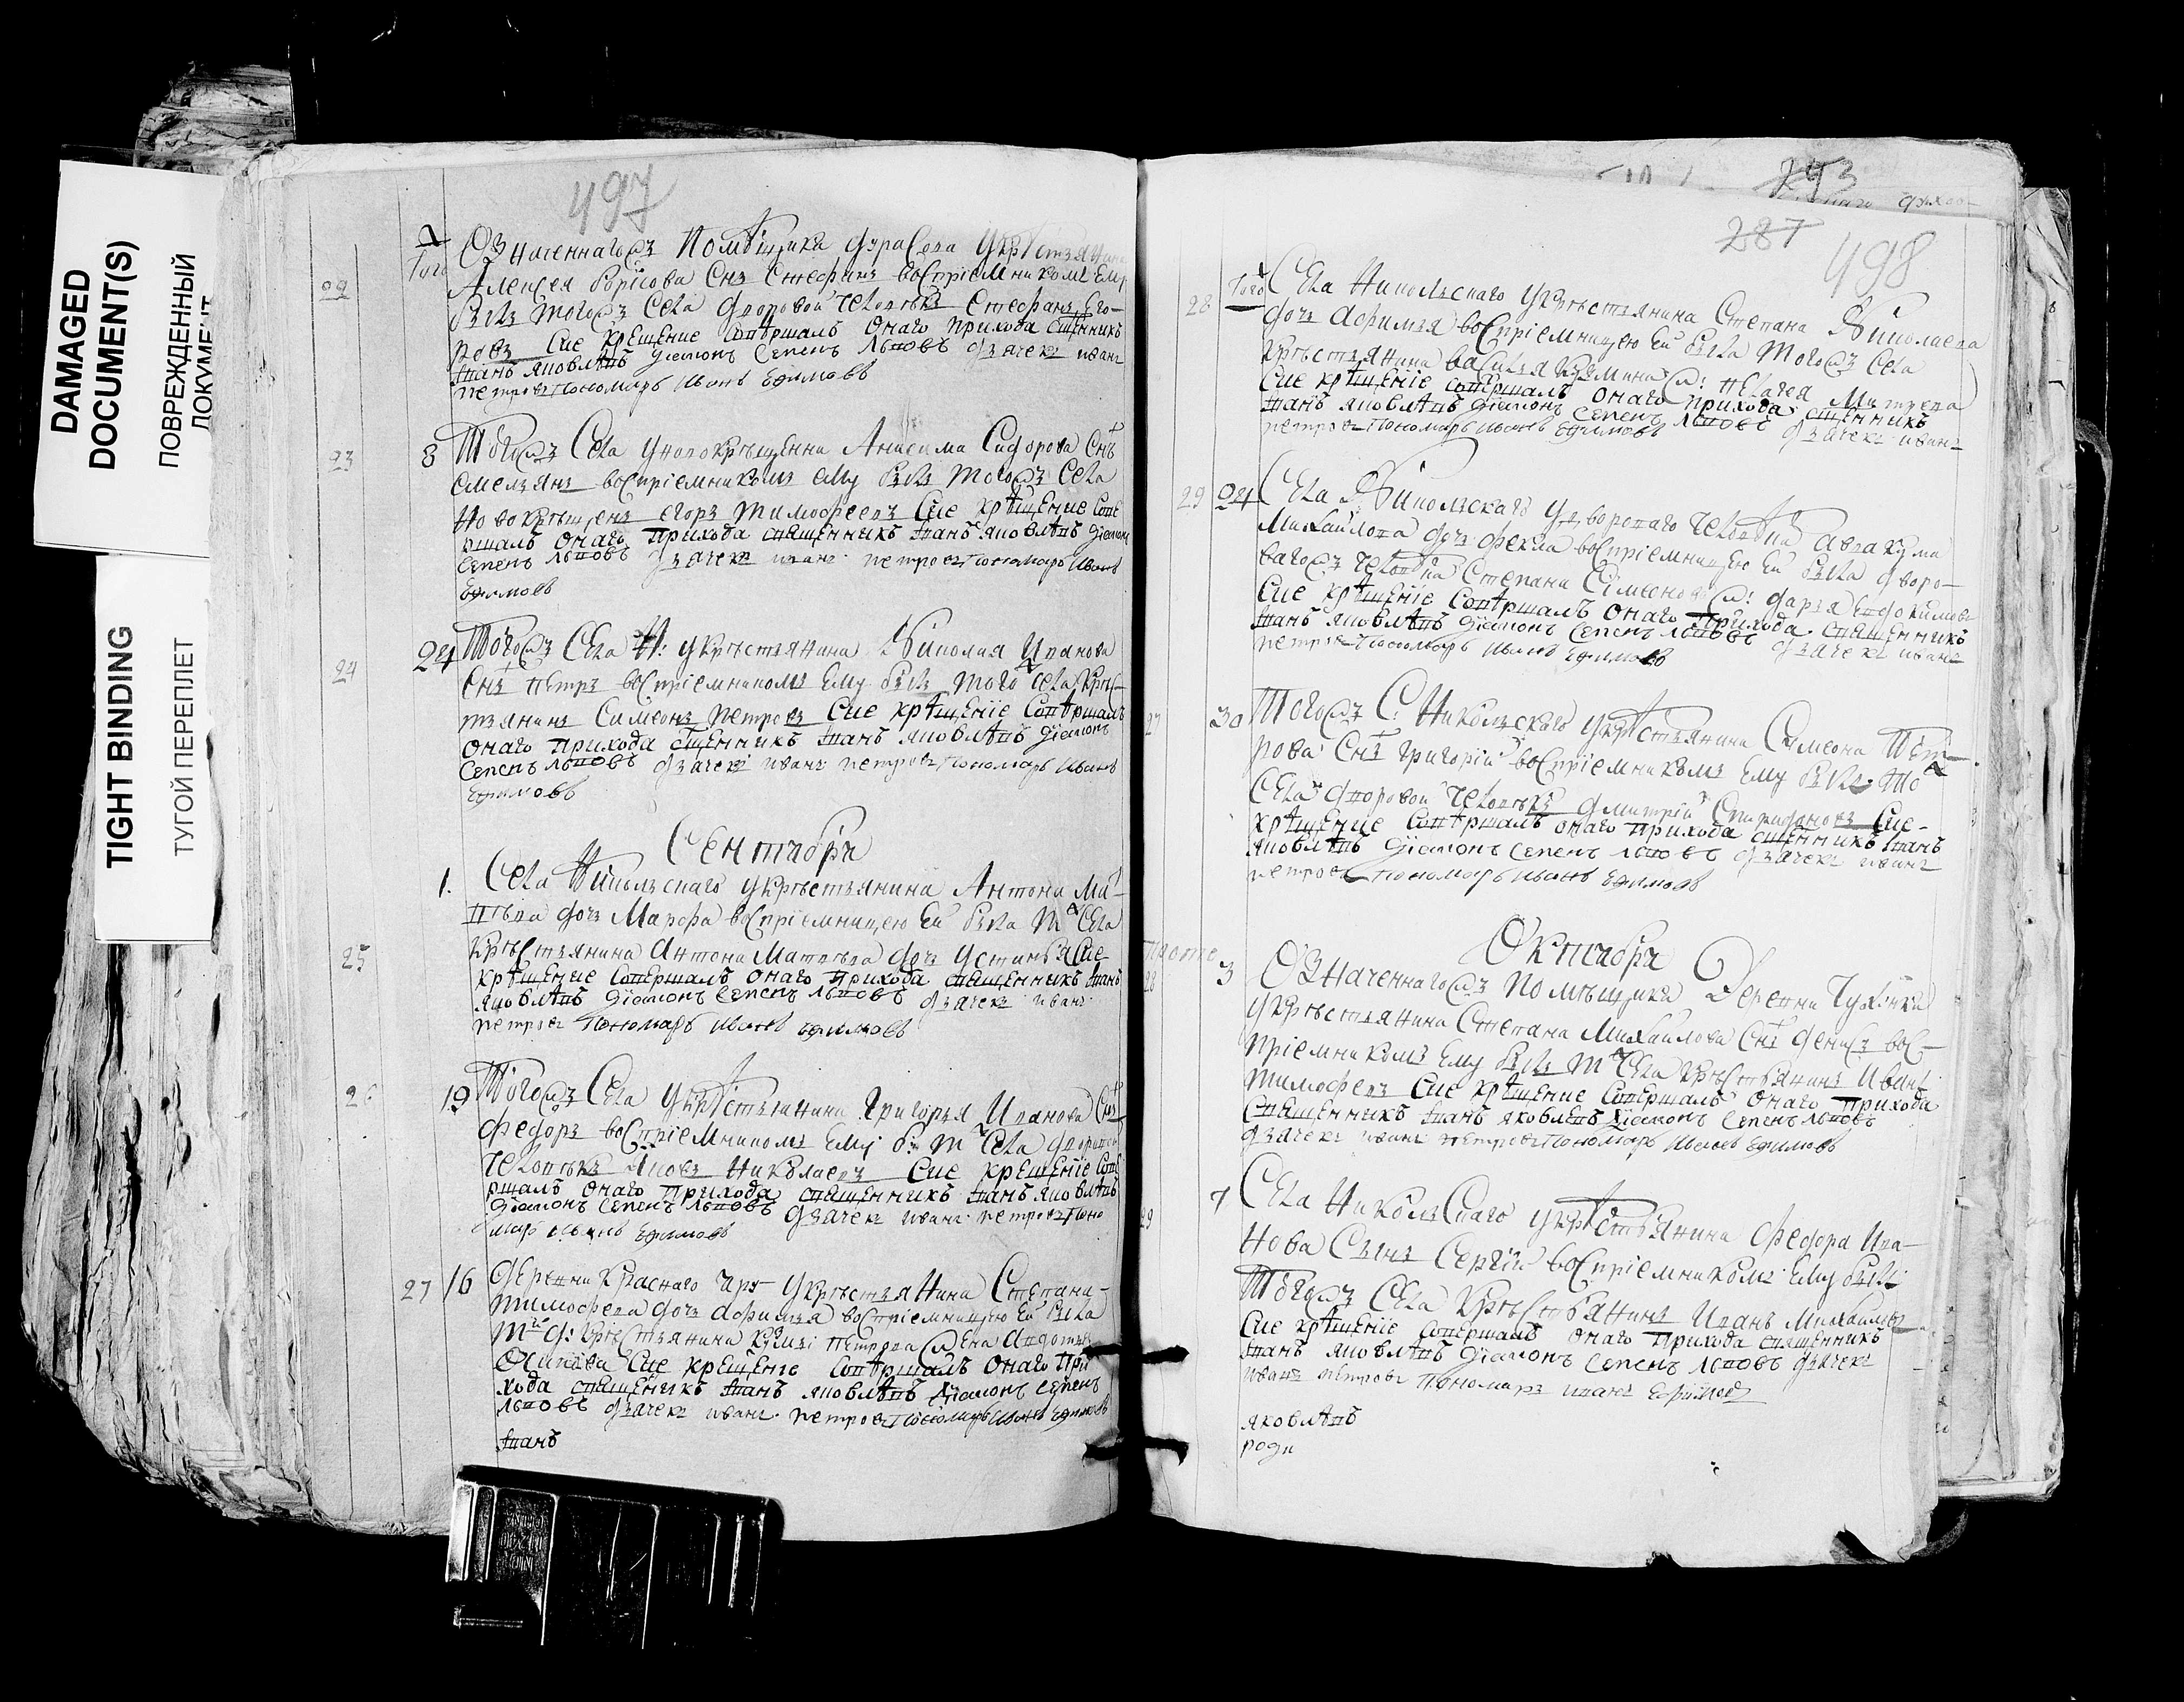 DAMAGED
DOCUMENT(S)
ПОВРЕЖДЕННЫЙ
ДОКУМЕНТ
TIGHT BINDING
ТУГОЙ ПЕРЕПЛЕТ
497
22 Того
Алексея Борисова снъ Стефанъ восприемникомъ ему
былъ того села дворовой человекъ Стефанъ Его-
ровъ Сие крещение совершалъ онаго прихода сщенникъ
Иванъ яковлевъ диаконъ семенъ львовъ дьячекъ иванъ
петровъ Пономарь Иванъ Ефимовъ
23 8 Того села у новокрещенна Анисима Сидорова снъ
емельянъ восприемникомъ ему былъ того села
Новокрещенъ егоръ тимофеевъ Сие крещение сове
ршалъ онаго прихода священникъ Иванъ яковлевъ диаконъ
семенъ львовъ дьячекъ иванъ петровъ Пономарь Иванъ
Ефимовъ
24 24 Того села Н: у крестьянина Николая Иванова
снъ петръ восприемникомъ ему былъ того села крес-
тьянинъ Симеонъ петровъ Сие крещение совершалъ
онаго прихода сщенникъ Иванъ яковлевъ диаконъ
семенъ львовъ дьячекъ иванъ петровъ Пономарь Иванъ
Ефимовъ
Сентября
1. Села Никольскаго у крестьянина Антона Ма-
твева дочь Марфа восприемницею ей была т села
25 крестьянина Антона Матвева дочь Устинья Сие
крещение совершалъ онаго прихода священникъ Иванъ
яковлевъ диаконъ семенъ львовъ дьячекъ иванъ
петровъ Пономарь Иванъ ефимовъ
26 19 Того села у крестьянина Григорья Иванова снъ
федоръ восприемникомъ ему б: т села дворовой
человекъ яковъ Николаевъ Сие крещение сове
ршалъ онаго прихода священникъ Иванъ яковлевъ
диаконъ семенъ львовъ дьячекъ иванъ петровъ Поно
марь Иванъ Ефимовъ
27 16 деревни Краснаго у крестьянина Степана
тимофеева дочь Афимья восприемницею ей была
той д: крестьянина петрова жена
Осипова Сие крещение совершалъ онаго при
хода священникъ Иванъ яковлевъ диаконъ семенъ
львовъ дьячекъ иванъ петровъ Пономарь Иванъ Ефимовъ
Иванъ
243
287
498
28 Того Села Никольскаго у крестьянина Степана Николаева
дочь Афимья восприемницею ей была того села
крестьянина василья пелагея
Сие крещение совершалъ онаго прихода сщенникъ
Иванъ яковлевъ диаконъ семенъ львовъ дьячекъ иванъ
петровъ Пономарь Иванъ Ефимовъ
29 24 Села Никольскаго у двороваго человека авакума
Михайлова дочь фекла восприемницею ей была дворо-
ваго человека Степана Симеонова дарья
Сие крещение совершалъ онаго прихода священникъ
Иванъ яковлевъ диаконъ семенъ львовъ дьячекъ иванъ
петровъ Пономарь Иванъ Ефимовъ
27 30 Того С. Никольскаго у крестьянина Симеона Пет-
рова снъ григорий восприемникомъ ему былъ то
села дворовой человекъ дмитрий Спиридоновъ Сие
крещение совершалъ онаго прихода сщенникъ Иванъ
яковлевъ диаконъ семенъ львовъ дьячекъ иванъ
петровъ Пономарь Иванъ Ефимовъ
Октября
28 3 Означеннаго помещика Деревни
у крестьянина Степана Михайлова снъ денисъ вос-
приемникомъ ему былъ т села крестьянинъ Иванъ
тимофевъ Сие крещение совершалъ онаго прихода
священникъ Иванъ яковлевъ диаконъ семенъ львовъ
дьячекъ иванъ петровъ Пономарь Иванъ Ефимовъ
29 7 Села Никольскаго у крестьянина Федора Ива-
нова сынъ Сергий восприемникомъ ему былъ
того села крестьянинъ Иванъ Михайловъ
Сие крещение совершалъ онаго прихода священникъ
Иванъ яковлевъ диаконъ семенъ львовъ дьячекъ
иванъ петровъ Пономарь иванъ Ефимовъ
яковлевъ
роди